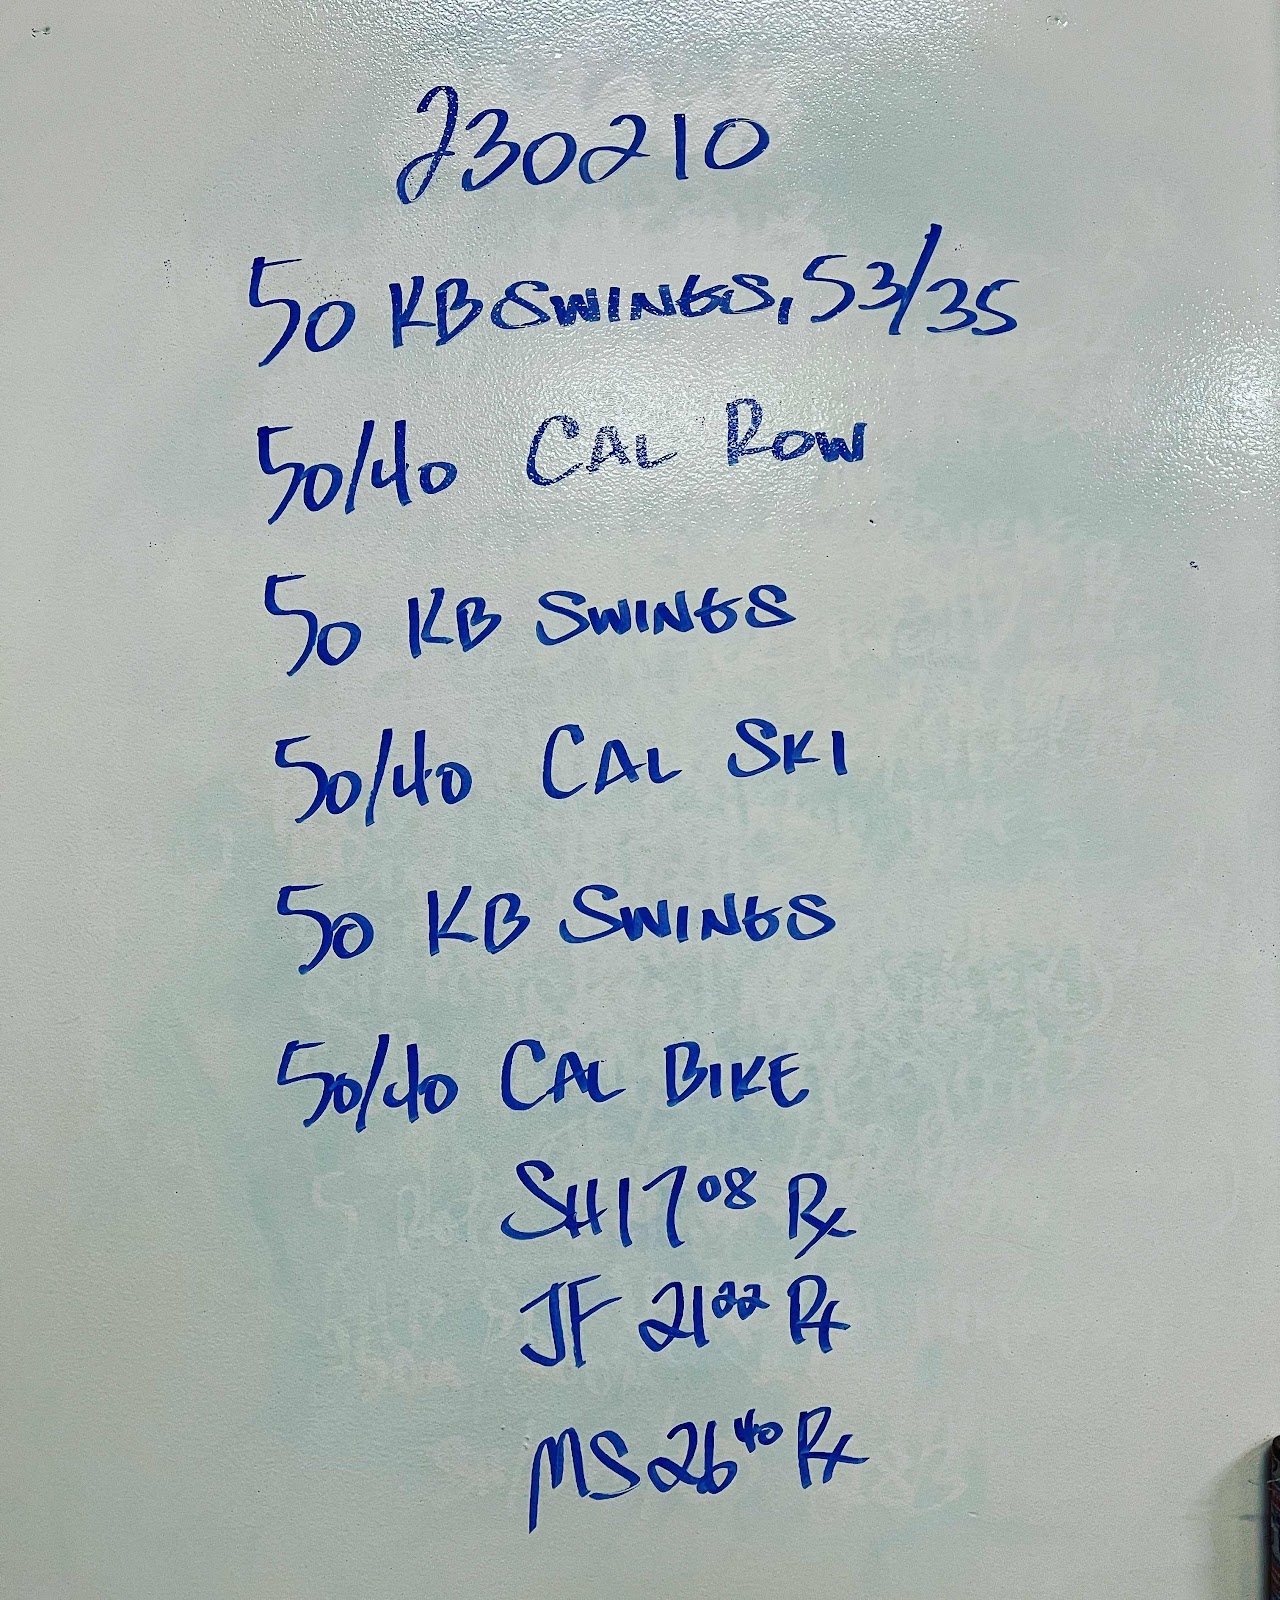 230210
50 KB SWINGS, 53/35
50/40 CAL ROW
50 KB SWINGS
50/40 CAL SKI
50 KB SWINGS
50/40 CAL BIKE
SH 17⁰⁸ Rx
JF 21²² Rx
MS 26⁴⁰ Rx